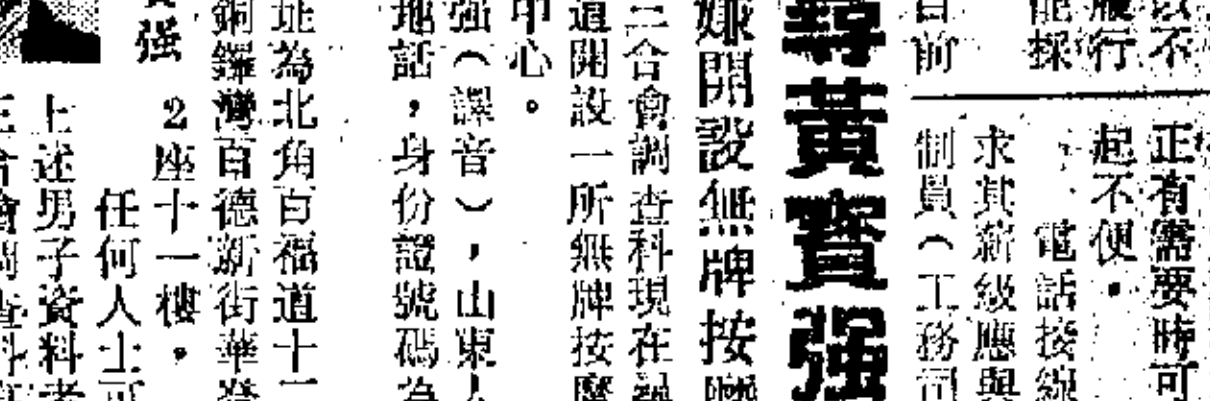 以不
履行
能採
目前
正有需要時可
起不便。
、電話接線
求其薪級應與
制員（工務司
尋黃寶强
嫌開設無牌按
三合會調查科現在尋
道開設一所無牌按摩
中心。
强（譯音），山東人
地話，身份證號碼為
址為北角百福道十一
銅鑼灣百德新街華登
强
2座十一樓。
任何人士可
上述男子資料者
三合會調查科